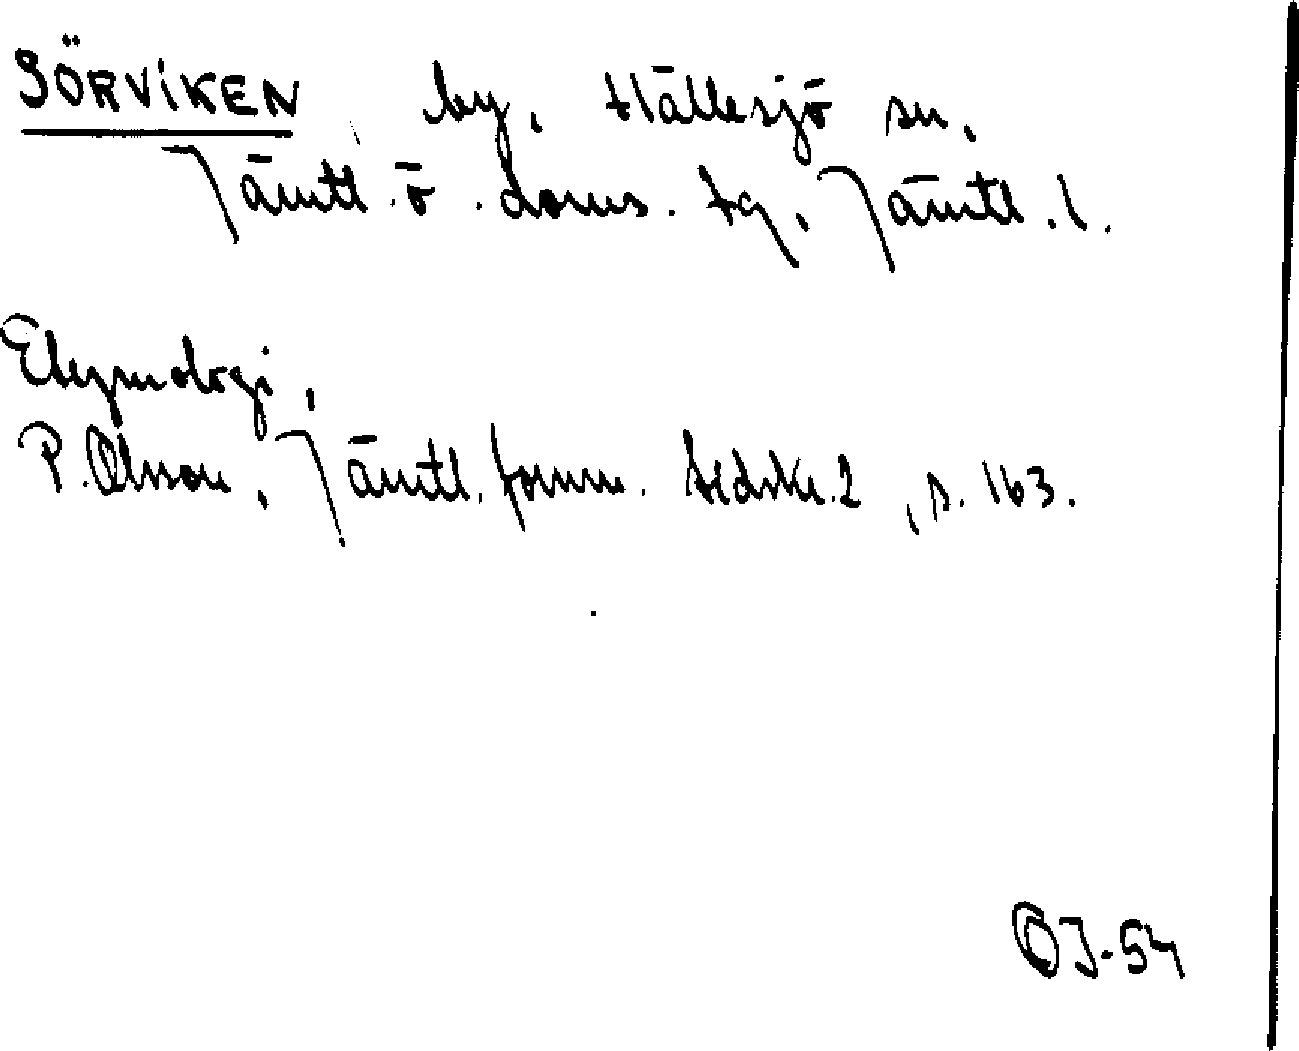 SÖRVIKEN by, Hällesjö sn,
Jämtl. ö. doms. tg, Jämtl. l.
Etymologi,
P. Olsson, Jämtl. fornm. tidskr. 2, s. 163.
OJ-54